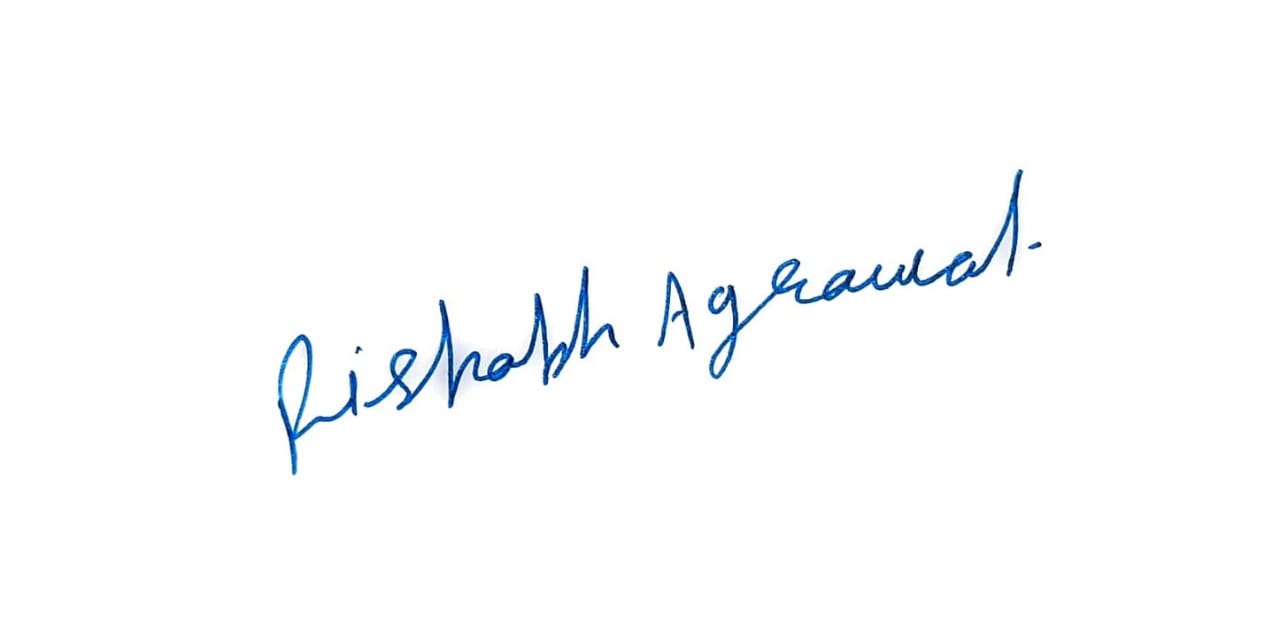 Rishabh Agrawal.